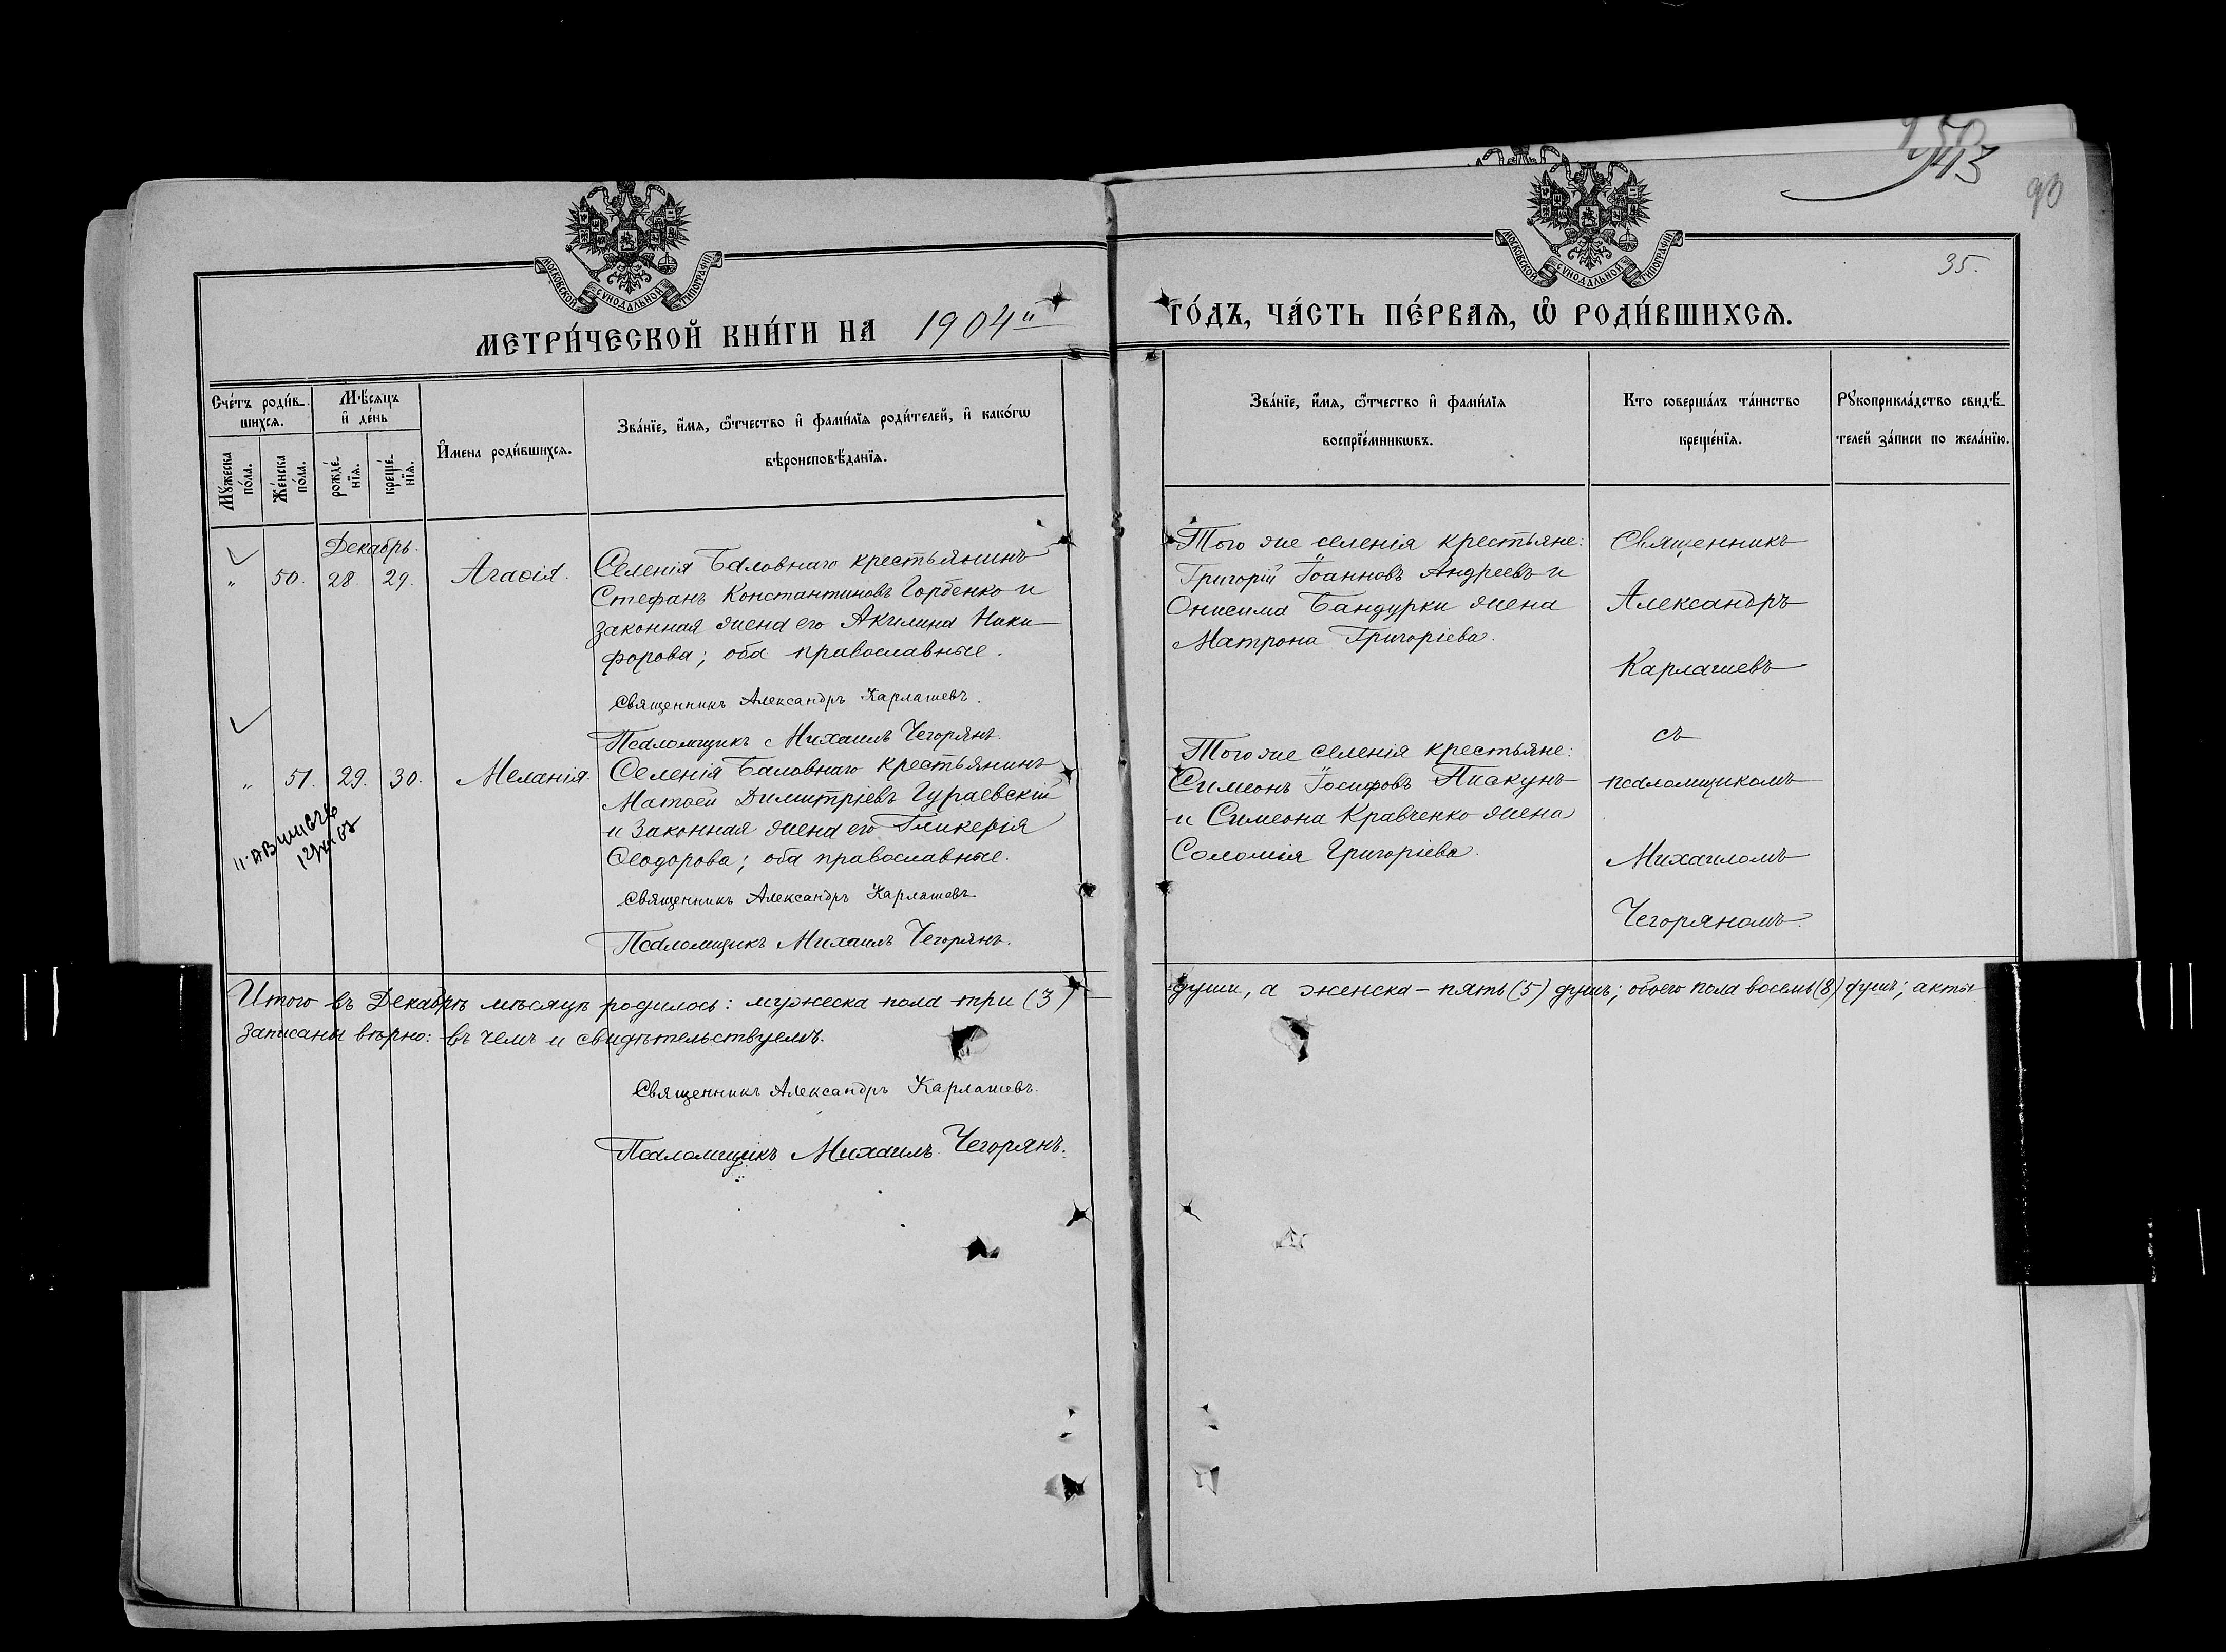 943
90
35.
МОСКОВСКОЙ СУНОДАЛЬНОЙ ТИПОГРАФІИ
МОСКОВСКОЙ СУНОДАЛЬНОЙ ТИПОГРАФІИ
МЕТРИ́ЧЕСКОЙ КНИ́ГИ НА 1904й
ГО́ДЪ, ЧА́СТЬ ПЕ́РВАѦ, Ѽ РОДИ́ВШИХСѦ.
Сче́тъ роди́в-
шихсѧ.
Мꙋ́жеска по́ла.
Же́нска по́ла.
Мѣ́сѧцъ
и҆ де́нь
рожде́-
нїѧ.
креще́-
нїѧ.
И҆мена роди́вшихсѧ.
Зва́нїе, и҆́мѧ, ѻ҆́тчество и҆ фами́лїѧ роди́телей, и҆ како́гѡ
вѣроисповѣ́данїѧ.
Зва́нїе, и҆́мѧ, ѻ҆́тчество и҆ фами́лїѧ
воспрїе́мникѡвъ.
Кто соверша́лъ та́инство
креще́нїѧ.
Рꙋкоприкла́дство свидѣ́-
телей за́писи по жела́нїю.
Декабрь.
" 50. 28. 29. Агаѳія.
Селенія Баловнаго крестьянинъ
Стефанъ Константиновъ Горбенко и
законная жена его Акилина Ники-
форова; оба православные.
Священникъ Александръ Карлашевъ.
Псаломщикъ Михаилъ Чегорянъ.
Того же селенія крестьяне:
Григорій Іоанновъ Андреевъ и
Онисима Бандурки жена
Матрона Григоріева.
Священникъ
Александръ
Карлашевъ
съ
псаломщикомъ
Михаиломъ
Чегоряномъ.
" 51. 29. 30. Меланія.
Селенія Баловнаго крестьянинъ
Матѳей Димитріевъ Гураевскій
и законная жена его Гликерія
Ѳеодорова; оба православные.
Священникъ Александръ Карлашевъ
Псаломщикъ Михаилъ Чегорянъ.
Того же селенія крестьяне:
Симеонъ Іосифовъ Пискунъ
и Симеона Кравченко жена
Соломія Григоріева.
Итого въ Декабрѣ мѣсяцѣ родилось: мужеска пола три (3) души, а женска – пять (5) душъ; обоего пола восемь (8) душъ; акты
записаны вѣрно: въ чемъ и свидѣтельствуемъ.
Священникъ Александръ Карлашевъ.
Псаломщикъ Михаилъ Чегорянъ.